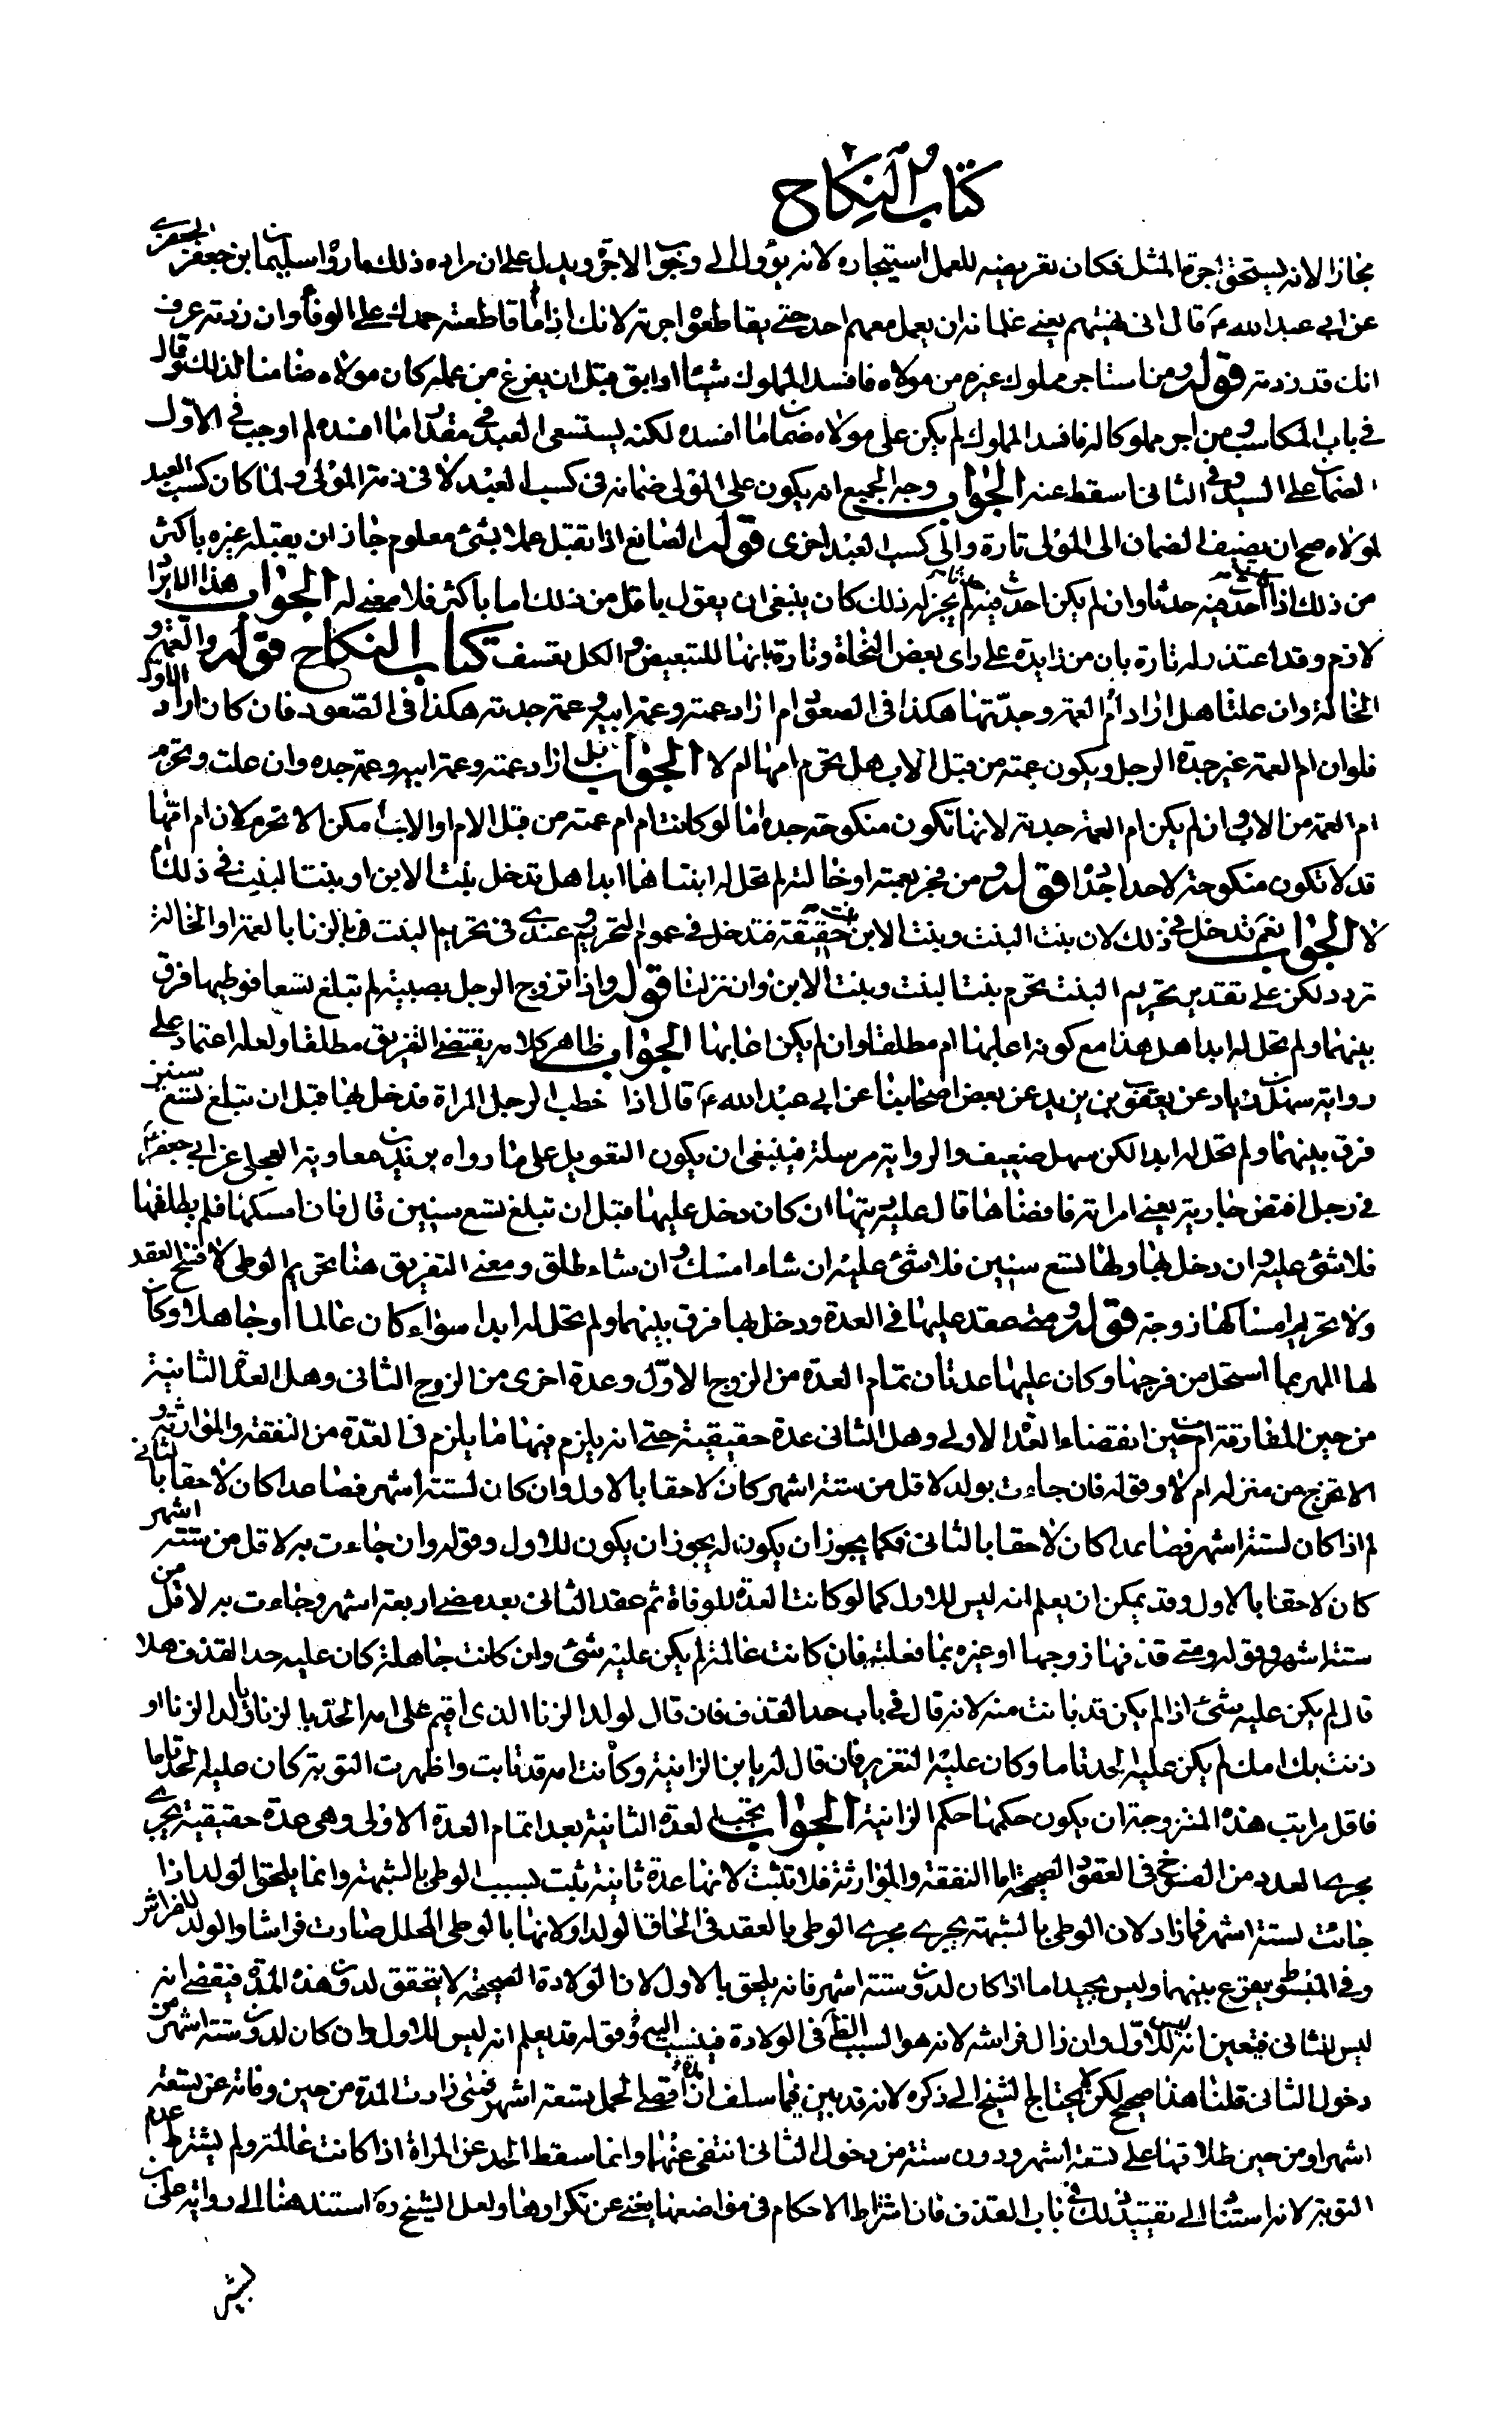 كتاب النكاح
مجازا لانه يستحق اجرة المثل فكان تعريضه للعمل استيجاره لانه يؤول الى وجوب الاجرة ويدل على ان مراده ذلك ما رواه سليمان بن جعفر الجعفري
عن ابي عبد الله ع قال اني نهيتهم يعني غلمانه ان يعمل معهم احد حتى يقاطعوا اجرته لانك اذا ما قاطعته حمدك على الوفاء وان زدته عرف
انك قد زدته قوله ومن استاجر مملوك غيره من مولاه فافسد المملوك شيئا او ابق قبل ان يفرغ من عمله كان مولاه ضامنا لذلك وقال
في باب المكاسب ومن اجر مملوكا له فافسد المملوك لم يكن على مولاه ضمان ما افسده لكنه يستسعى العبد في مقدار ما افسده لم اوجب في الاول
الضمان على السيد وفي الثاني اسقط عنه الجواب وجه الجمع انه يكون على المولى ضمانه في كسب العبد لا في ذمة المولى ولما كان كسب العبد
لمولاه صح ان يضيف الضمان الى المولى تارة والى كسب العبد اخرى قوله الصانع اذا تقبل عملا بشئ معلوم جاز ان يقبله غيره باكثر
من ذلك اذا احدث فيه حدثا وان لم يكن احدث فيه لم يجز له ذلك كان ينبغي ان يقول باقل من ذلك اما باكثر فلا معنى له الجواب هذا الايراد
لازم وقد اعتذر له تارة بان من زايدة على راى بعض النحاة وتارة بانها للتبعيض والكل تعسف كتاب النكاح قوله والعمة و
الخالة وان علتا هل اراد ام العمة وجدتها هكذا في الصعود ام اراد عمته وعمة ابيه وعمة جدته هكذا في الصعود فان كان اراد الاول
فلو ان ام العمة غير جدة الرجل ويكون عمته من قبل الاب هل تحرم امها ام لا الجواب بل اراد عمته وعمة ابيه وعمة جده وان علت وتحرم
ام العمة من الاب وان لم يكن ام العمة جدته لانها تكون منكوحة جده اما لو كانت ام ام عمته من قبل الام او الاب امكن الا تحرم لان ام امها
قد لا تكون منكوحة لاحد اجداده قوله ومن فجر بعمته او خالته لم تحل له ابنتاهما ابدا هل تدخل بنت الابن او بنت البنت في ذلك ام
لا الجواب نعم تدخل في ذلك لان بنت البنت وبنت الابن بنت حقيقة فتدخل في عموم التحريم وعندي في تحريم البنت في الزنا بالعمة او الخالة
تردد لكن على تقدير تحريم البنت تحرم بنت البنت وبنت الابن وان نزلتا قوله واذا تزوج الرجل بصبية لم تبلغ تسعا فوطيها فرق
بينهما ولم تحل له ابدا هل هذا مع كونه اعابها ام مطلقا وان لم يكن اعابها الجواب ظاهر كلامه يقتضي التفريق مطلقا ولعله اعتماد على
رواية سهل بن زياد عن يعقوب بن يزيد عن بعض اصحابنا عن ابي عبد الله ع قال اذا خطب الرجل المراة فدخل بها قبل ان تبلغ تسع سنين
فرق بينهما ولم تحل له ابدا لكن سهل ضعيف والرواية مرسلة فينبغي ان يكون التعويل على ما رواه بريد بن معاوية العجلي عن ابي جعفر ع
في رجل افتض جارية يعني امراته فافضاها قال عليه ديتها ان كان دخل عليها قبل ان تبلغ تسع سنين قال فان امسكها فلم يطلقها
فلا شئ عليه وان دخل بها ولها تسع سنين فلا شئ عليه ان شاء امسك وان شاء طلق ومعنى التفريق هنا تحريم الوطى لا فسخ العقد
ولا تحريم امساكها زوجة قوله ومتى عقد عليها في العدة ودخل بها فرق بينهما ولم تحل له ابدا سواء كان عالما او جاهلا وكان
لها المهر بما استحل من فرجها وكان عليها عدتان تمام العدة من الزوج الاول وعدة اخرى من الزوج الثاني وهل العدة الثانية
من حين المفارقة ام من حين انقضاء العدة الاولى وهل الثاني عدة حقيقية حتى انه يلزم فيها ما يلزم في العدة من النفقة والموارثة و
الا تخرج من منزله ام لا وقوله فان جاءت بولد لاقل من ستة اشهر كان لاحقا بالاول وان كان لستة اشهر فصاعدا كان لاحقا بالثاني
لم اذا كان لستة اشهر فصاعدا كان لاحقا بالثاني فكما يجوز ان يكون له يجوز ان يكون للاول وقوله وان جاءت به لاقل من ستة اشهر
كان لاحقا بالاول وقد يمكن ان يعلم انه ليس للاول كما لو كانت العدة للوفاة ثم عقد الثاني بعد مضي اربعة اشهر وجاءت به لاقل من
ستة اشهر وقوله ومتى قذفها زوجها او غيره بما فعلته فان كانت عالمة لم يكن عليه شئ وان كانت جاهلة كان عليه حد القذف هلا
قال لم يكن عليه شئ اذا لم يكن قد تابت منه لانه قال في باب حد القذف فان قال لولد الزنا الذي اقيم على امه الحد بالزنا يا ولد الزنا او
زنت بك امك لم يكن عليه الحد تاما وكان عليه التعزير فان قال له يا بن الزانية وكانت امه قد تابت واظهرت التوبة كان عليه الحد تاما
فاقل مراتب هذه المتزوجة ان يكون حكمها حكم الزانية الجواب يجب العدة الثانية بعد اتمام العدة الاولى وهي عدة حقيقية تجري
مجرى العدد من الفسخ في العقود الصحيحة اما النفقة والموارثة فلا تثبت لانها عدة ثانية ثبت بسبب الوطى بالشبهة وانما يلحق الولد اذا
جائت لستة اشهر فما زاد لان الوطى بالشبهة يجري مجرى الوطى بالعقد في الحاق الولد ولانها بالوطى المحلل صارت فراشا والولد للفراش
وفي المبسوط يقرع بينهما وليس بجيد اما اذا كان لدون ستة اشهر فانه يلحق بالاول لان الولادة الصحيحة لا يتحقق لدون هذه المدة فيقضى انه
ليس للثاني فيتعين انه للاول وان زال فراشه لانه هو السبب الظاهر في الولادة فينسب اليه وقوله قد يعلم انه ليس للاول وان كان لدون ستة اشهر من
دخول الثاني قلنا هذا صحيح لكن لا يحتاج الشيخ الى ذكره لانه قد بين فيما سلف ان اقصى الحمل تسعة اشهر فمتى زادت المدة من حين وفاته عن تسعة
اشهر او من حين طلاقها على تسعة اشهر ودون ستة من دخول الثاني انتفى عنهما وانما سقط الحد عن المراة اذا كانت عالمة ولم يشترط عدم
التوبة لانه استنادا الى تقييد ذلك في باب القذف فان اشتراط الاحكام في مواضعها يغني عن تكرارها ولعل الشيخ ره استند هنا الى رواية علي بن